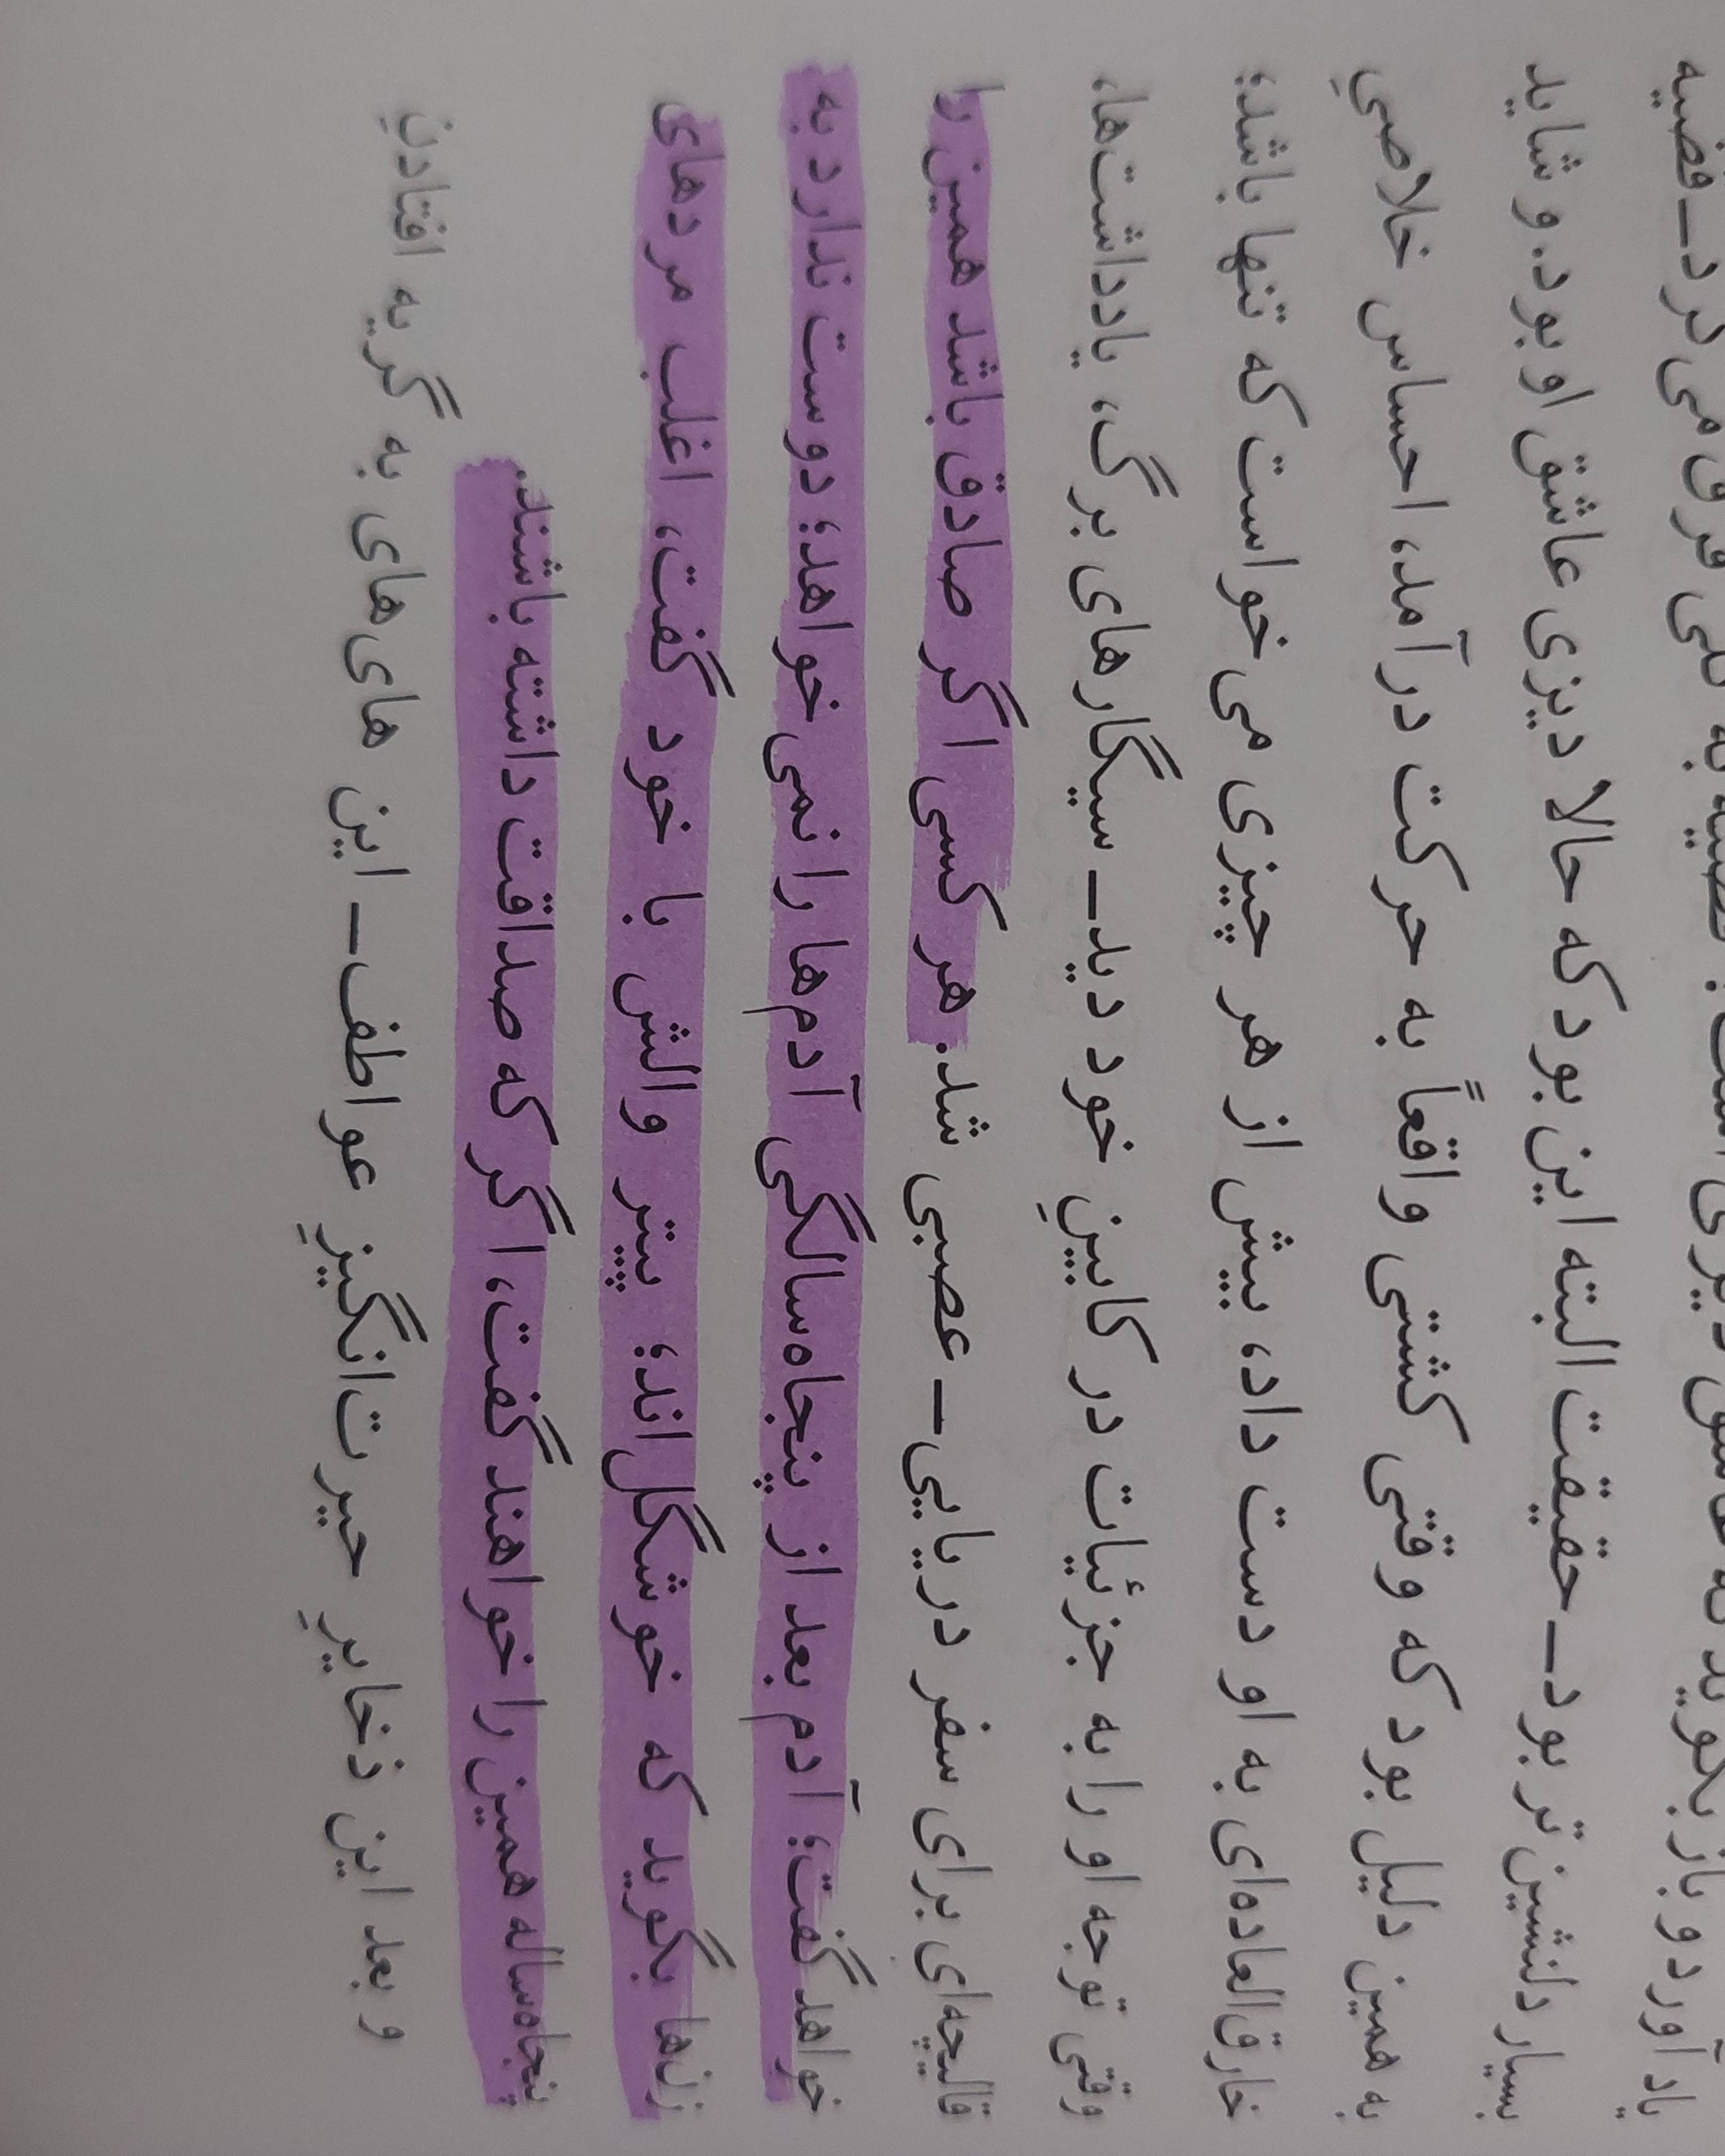 یاد آورد و باز بگوید که عاشق دیگری است؛ قضیه به کلی فرق می‌کرد ــ قضیه
بسیار دلنشین‌تر بود ــ حقیقت البته این بود که حالا دیزی عاشق او بود. و شاید
به همین دلیل بود که وقتی کشتی واقعاً به حرکت درآمد، احساس خلاصیِ
خارق‌العاده‌ای به او دست داد، بیش از هر چیزی می‌خواست که تنها باشد؛
وقتی توجه او را به جزئیات در کابینِ خود دید ــ سیگارهای برگ، یادداشت‌ها،
قالیچه‌ای برای سفر دریایی ــ عصبی شد. هر کسی اگر صادق باشد همین را
خواهد گفت؛ آدم بعد از پنجاه‌سالگی آدم‌ها را نمی‌خواهد؛ دوست ندارد به
زن‌ها بگوید که خوشگل‌اند؛ پیتر والش با خود گفت، اغلب مردهای
پنجاه‌ساله همین را خواهند گفت، اگر که صداقت داشته باشند.
و بعد این ذخایرِ حیرت‌انگیزِ عواطف ــ این های‌های به گریه افتادنِ